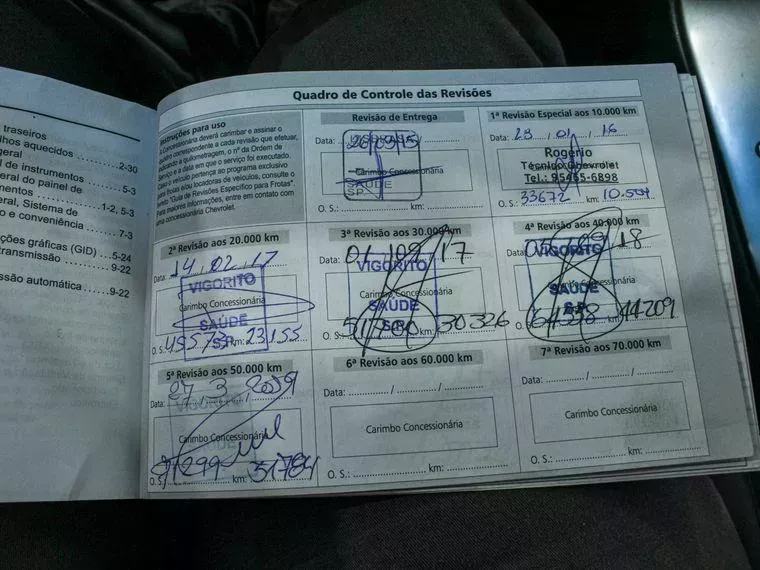 traseiros
lhos aquecidos ........ 2-30
eral
l de instrumentos ...... 5-3
eral do painel de
mentos ............ 1-2, 5-3
eral, Sistema de
o e conveniência
........ 7-3
ções gráficas (GID) ..... 5-24
transmissão ............ 9-22
ssão automática ...... 9-22
Quadro de Controle das Revisões
Instruções para uso
A Concessionária deverá carimbar e assinar o
quadro correspondente a cada revisão que efetuar,
indicando a quilometragem, o nº da Ordem de
Serviço e a data em que o serviço foi executado.
Caso o veículo pertença ao programa exclusivo
para frotas e/ou locadoras de veículos, consulte o
livreto "Guia de Revisões Específico para Frotas".
Para maiores informações, entre em contato com
uma concessionária Chevrolet.
Revisão de Entrega
Data:
Carimbo Concessionária
SAÚDE
S.P.
O. S.: km:
1ª Revisão Especial aos 10.000 km
Data: 28 / 01 / 16
Rogério
Técnico Chevrolet
Carimbo Concessionária
Tel.: 95455-6898
O. S.: 33672 km: 10.504
2ª Revisão aos 20.000 km
Data: 14 . 02 . 17
VIGORITO
Carimbo Concessionária
SAÚDE
S.P.
O. S.: km: 23.155
3ª Revisão aos 30.000 km
Data: 17
VIGORITO
Carimbo Concessionária
SAÚDE
S.P.
O. S.: km: 30326
4ª Revisão aos 40.000 km
Data: 18
VIGORITO
Carimbo Concessionária
SAÚDE
S.P.
O. S.: km: 44209
5ª Revisão aos 50.000 km
Data: 27 / 3 / 2019
VIGORITO
Carimbo Concessionária
O. S.: 71299 km: 51784
6ª Revisão aos 60.000 km
Data: ............ / ............ / ............
Carimbo Concessionária
O. S.: .................... km: ....................
7ª Revisão aos 70.000 km
Data: ............ / ............ / ............
Carimbo Concessionária
O. S.: .................... km: ....................